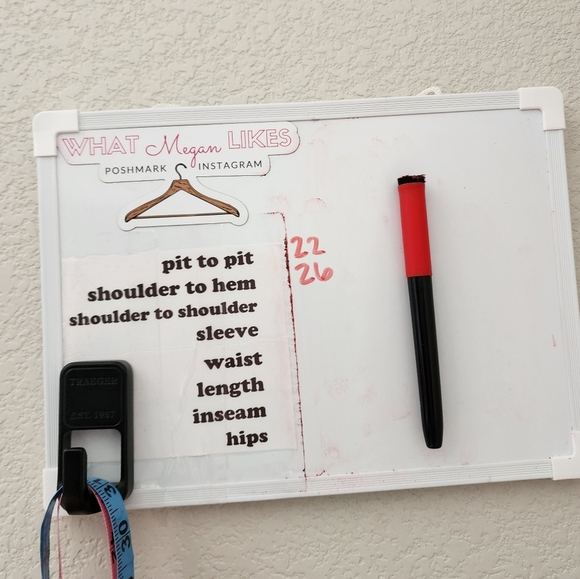 WHAT Megan LIKES
POSHMARK INSTAGRAM
pit to pit 22
shoulder to hem 26
shoulder to shoulder
sleeve
waist
length
inseam
hips
TRAEGER
EST. 1987
30